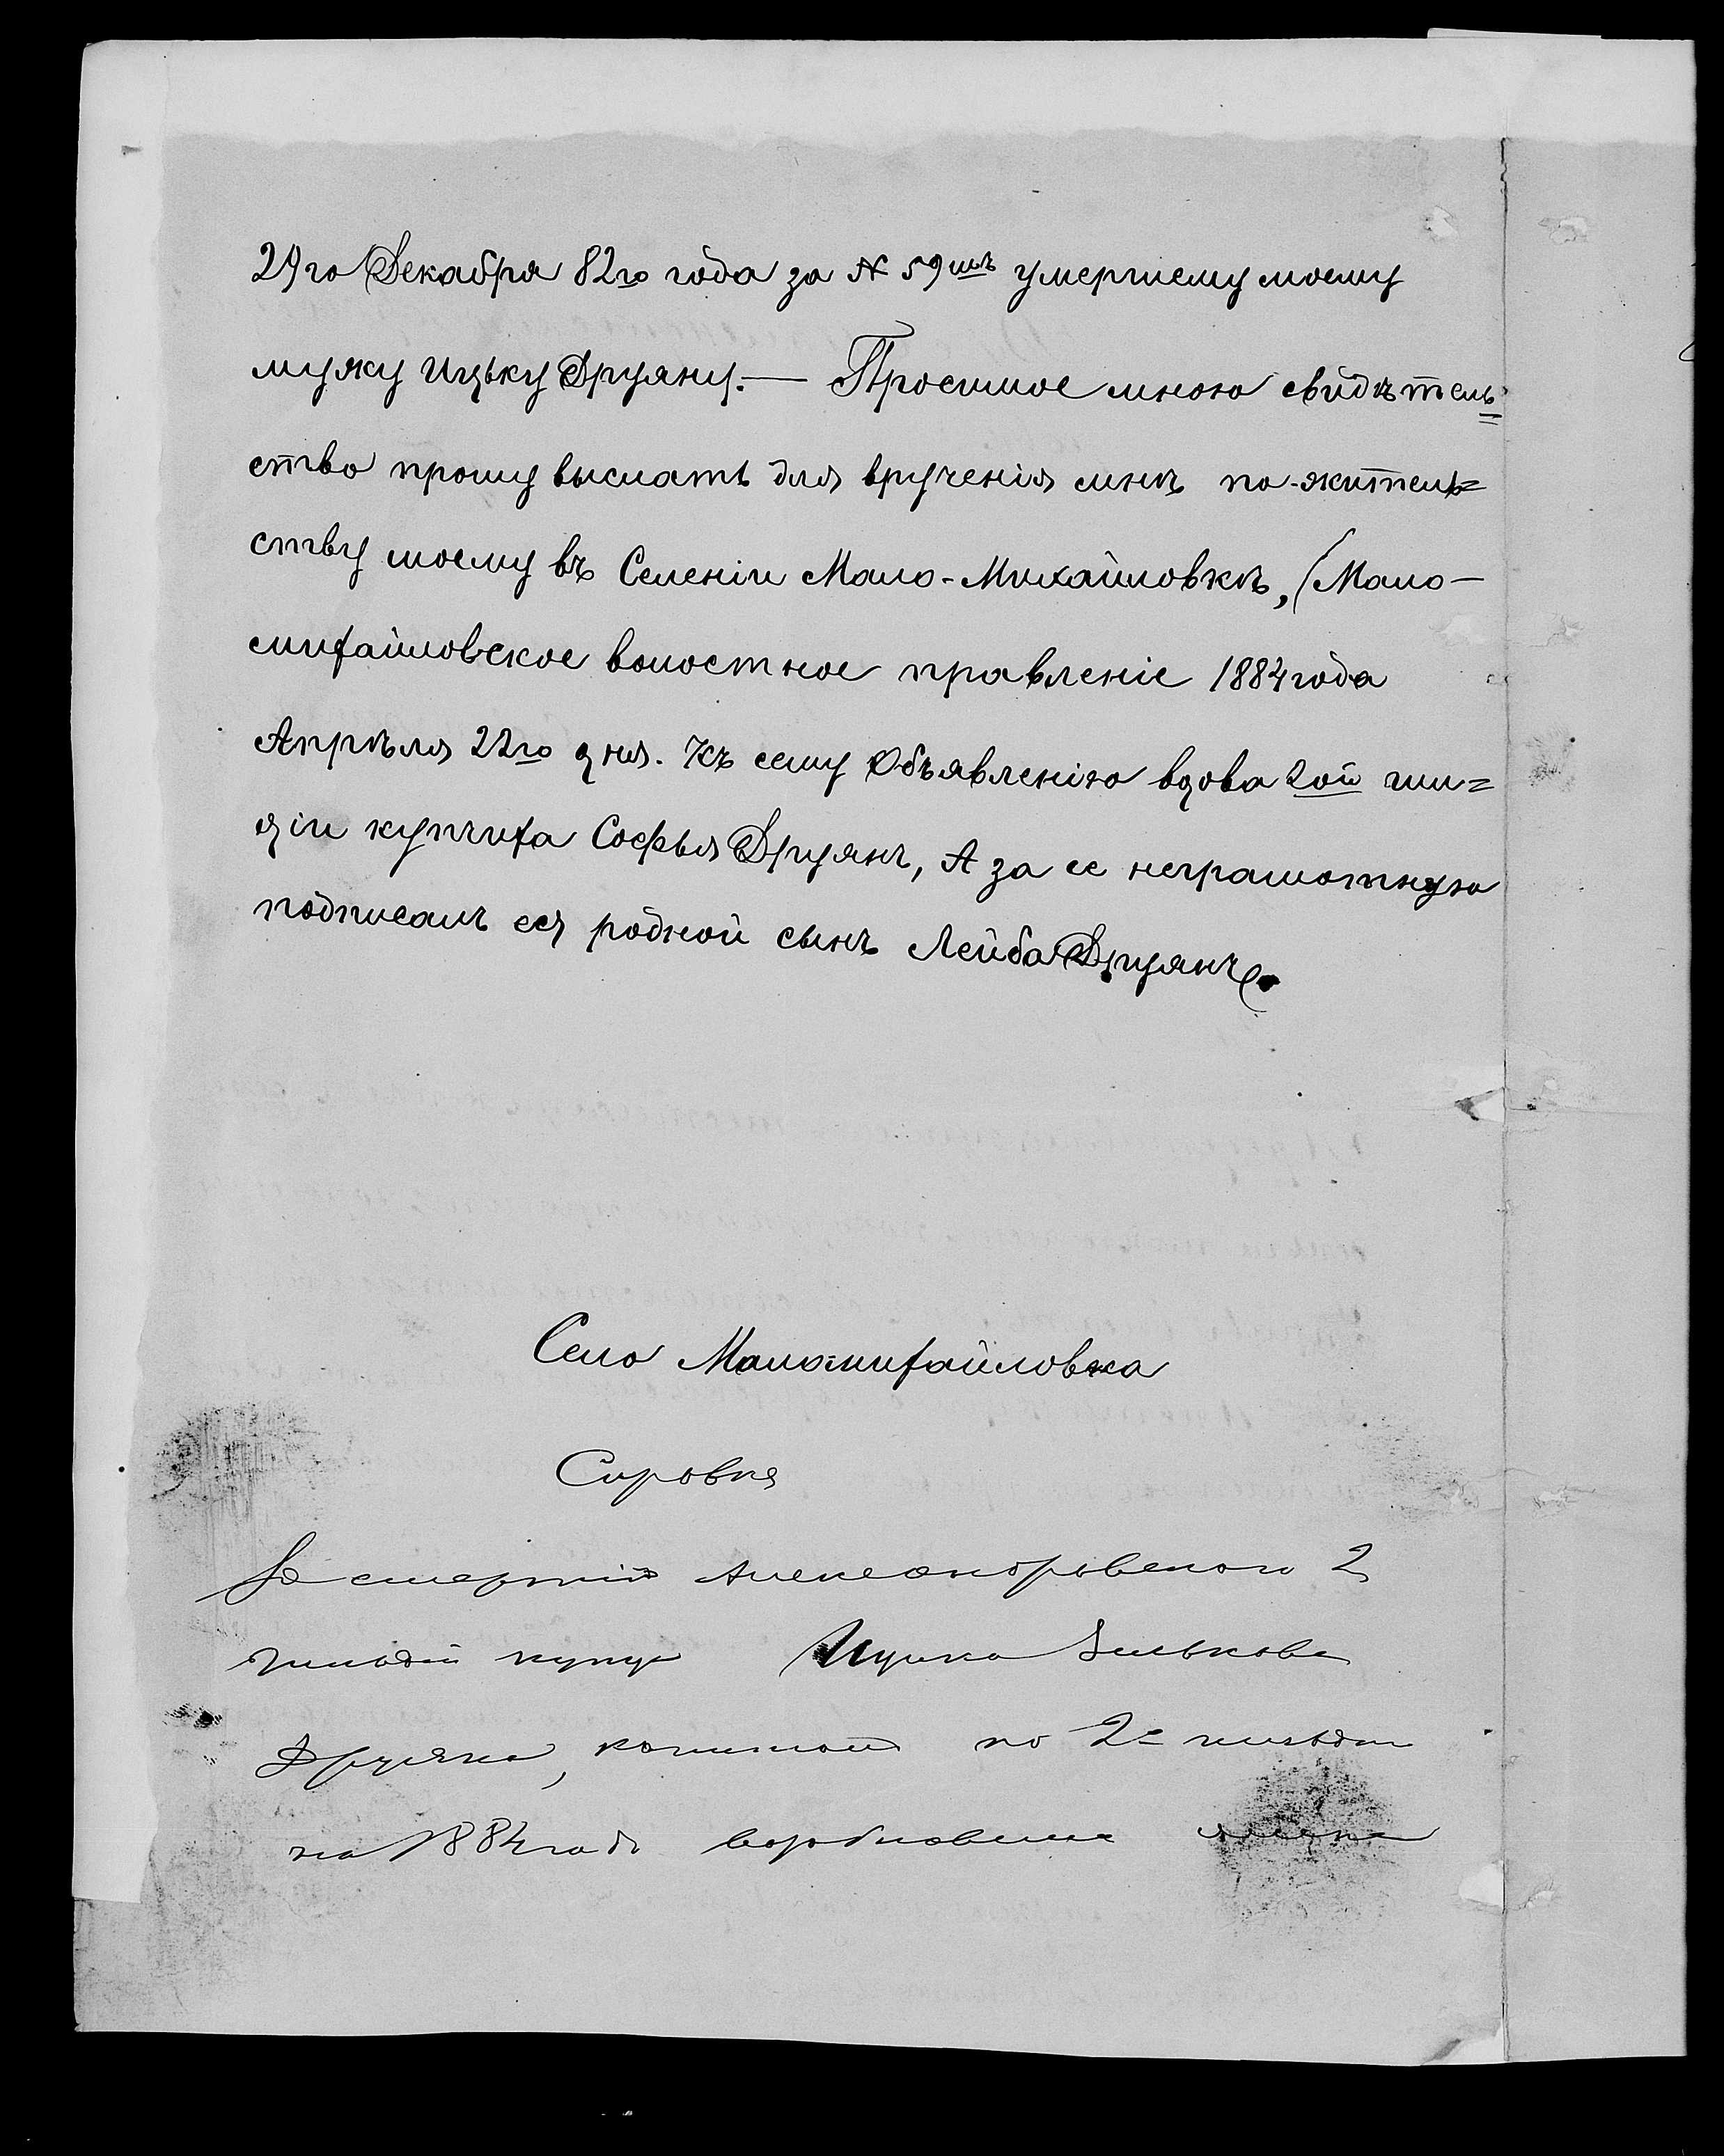 29го Декабря 82го года за № 59мъ умершему моему
мужу Ицьку Друяну. — Просимое мною свидѣтель=
ство прошу выслать для врученія мнѣ по-житель=
ству моему въ Селеніи Мало-Михайловкѣ, (Мало-
михайловское волостное правленіе 1884 года
Апрѣля 22го дня. Къ сему Объявленію вдова 2ой гил=
діи купчиха Софья Друянъ, А за ее неграмотную
подписалъ ея родной сынъ Лейба Друянъ.
Село Маломихайловка
Справка
За смертію Александровскаго 2
гильдіи купца Ицика Зилькова
Друяна, капиталъ по 2й гильдіи
на 1884 годъ